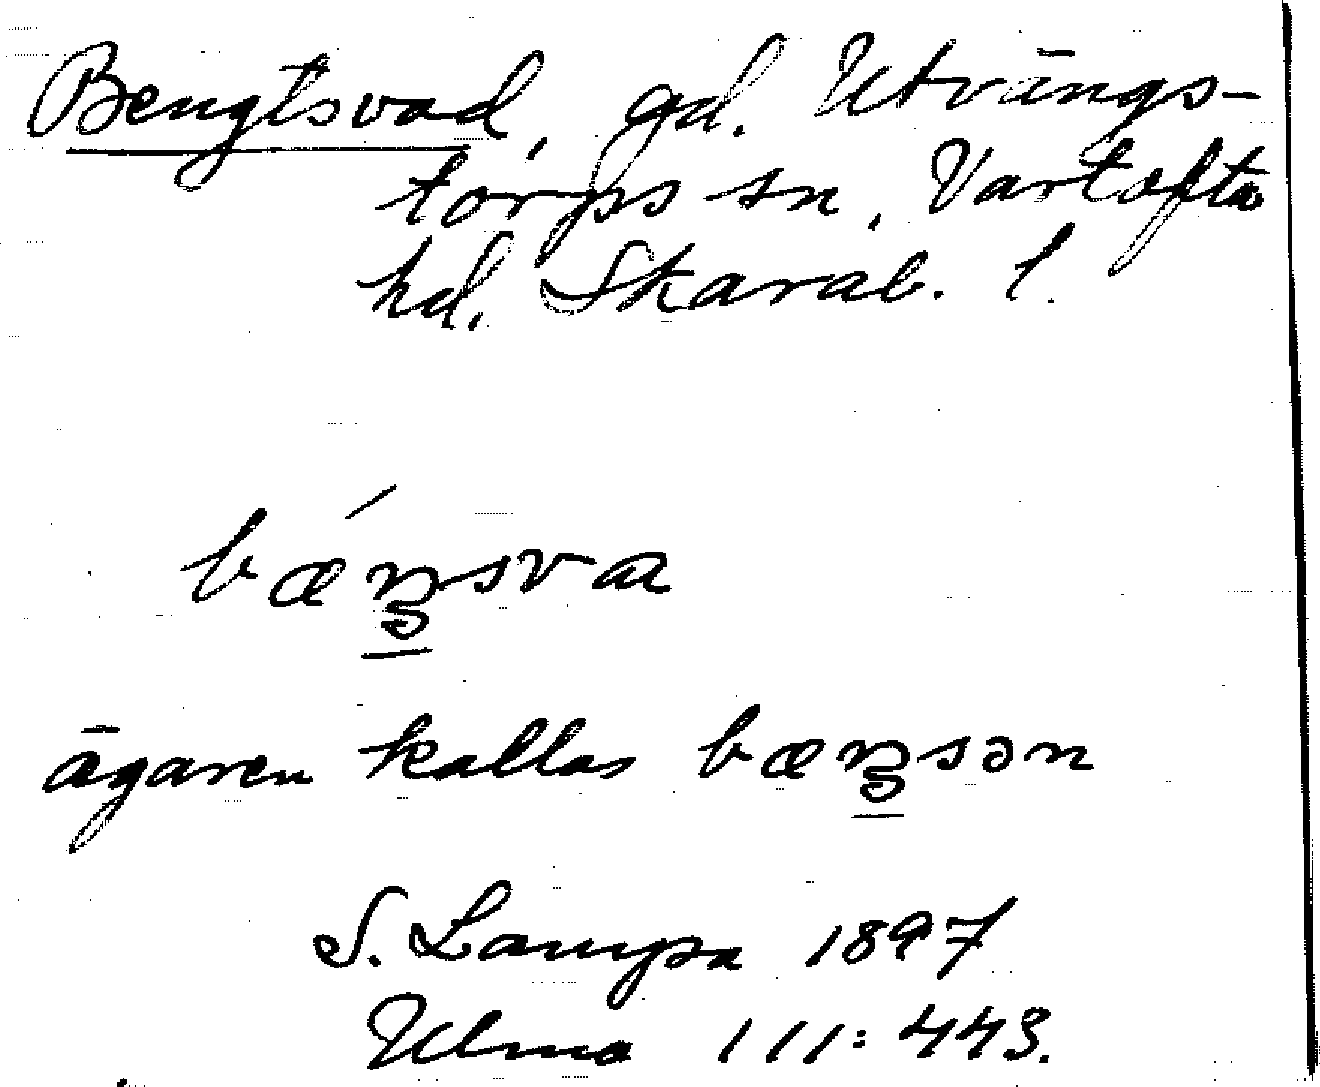 Bengtsvad, gd. Utvängs-
torps sn, Vartofta
hd. Skarab. l.
bæŋsva
ägaren kallas bæŋsən
S. Lampa 1897
Ulma 111:443.